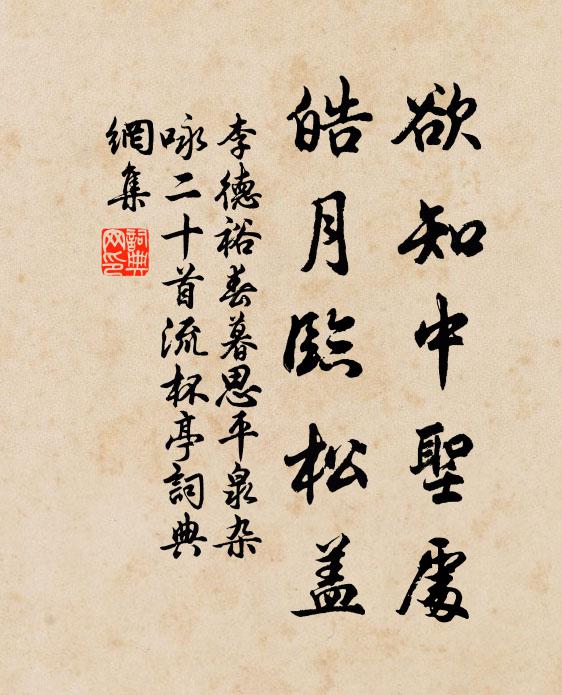 欲知中聖處
皓月臨松盖
李德裕春暮思平泉杂
咏二十首流杯亭詞典
網集
詞典网印